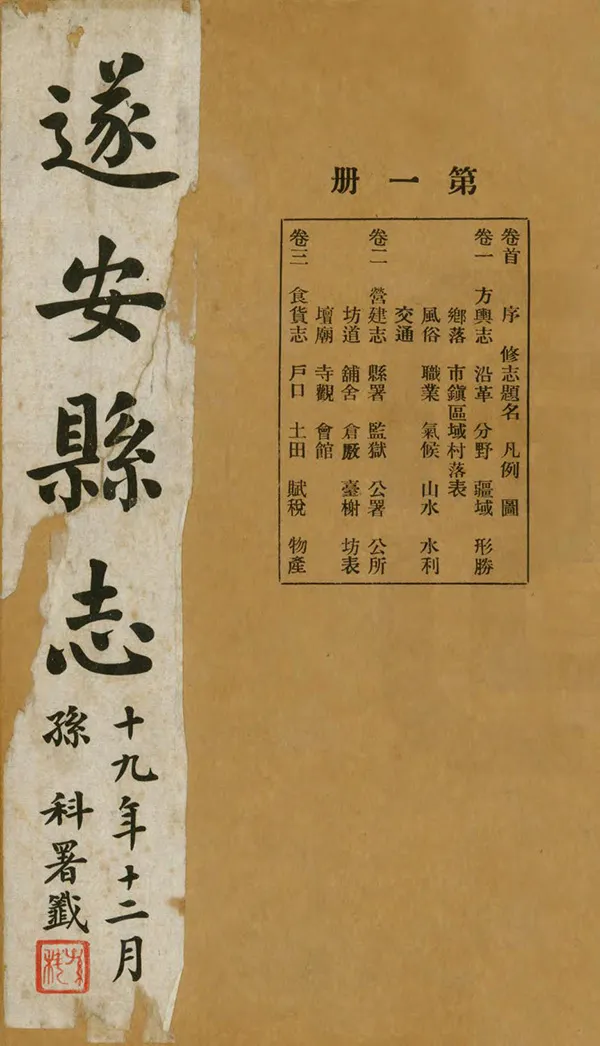 第一册
卷首 序 修志題名 凡例 圖
卷一 方輿志 沿革 分野 疆域 形勝
鄉落 市鎮區域村落表
風俗 職業 氣候 山水 水利
交通
卷二 營建志 縣署 監獄 公署 公所
坊道 舖舍 倉厫 臺榭 坊表
壇廟 寺觀 會館
卷三 食貨志 戶口 土田 賦稅 物產
遂安縣志
十九年十二月
孫科署籤
孫科